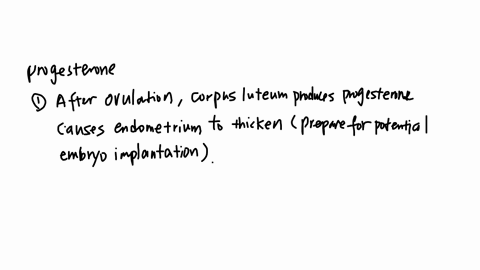 progesterone
① After ovulation, corpus luteum produces progesterone
causes endometrium to thicken (prepare for potential
embryo implantation).